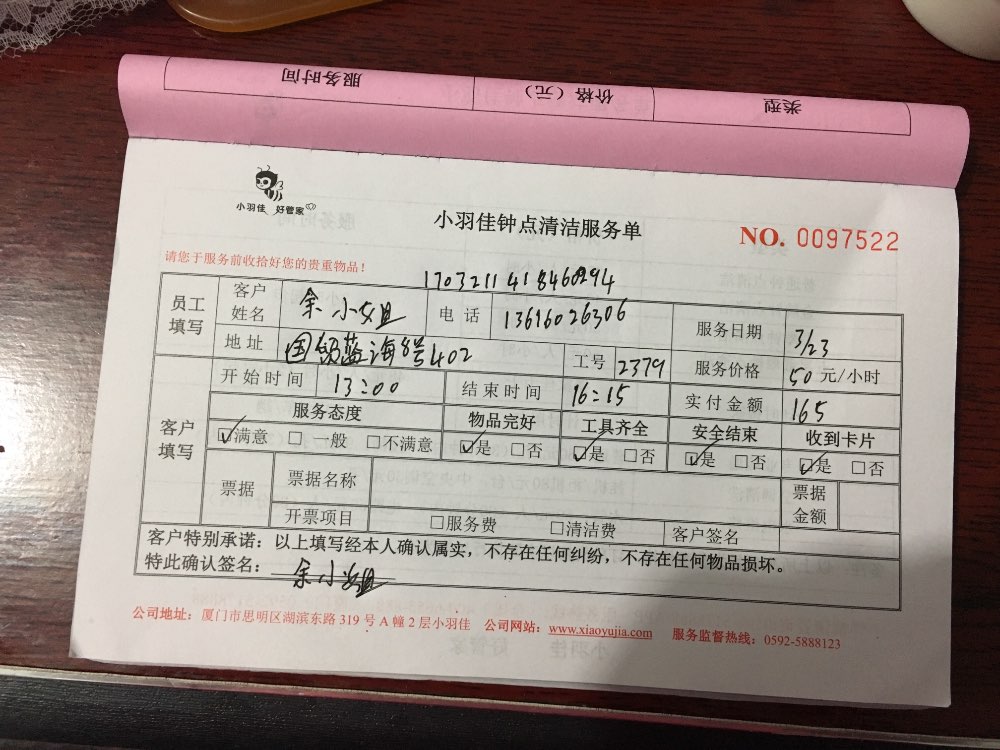 服务时间 价格（元） 类型
小羽佳 好管家
小羽佳钟点清洁服务单
NO. 0097522
请您于服务前收拾好您的贵重物品！
1703211418460294
员工填写 客户姓名 余小姐 电话 13616026306 服务日期 3/23
地址 国贸蓝海8号402 工号 2379 服务价格 50 元/小时
开始时间 13:00 结束时间 16:15 实付金额 165
客户填写 服务态度 物品完好 工具齐全 安全结束 收到卡片
☑满意 □一般 □不满意 ☑是 □否 ☑是 □否 ☑是 □否 ☑是 □否
票据 票据名称 票据金额
开票项目 □服务费 □清洁费 客户签名
客户特别承诺：以上填写经本人确认属实，不存在任何纠纷，不存在任何物品损坏。
特此确认签名： 余小姐
公司地址：厦门市思明区湖滨东路 319 号 A 幢 2 层小羽佳 公司网站：www.xiaoyujia.com 服务监督热线：0592-5888123